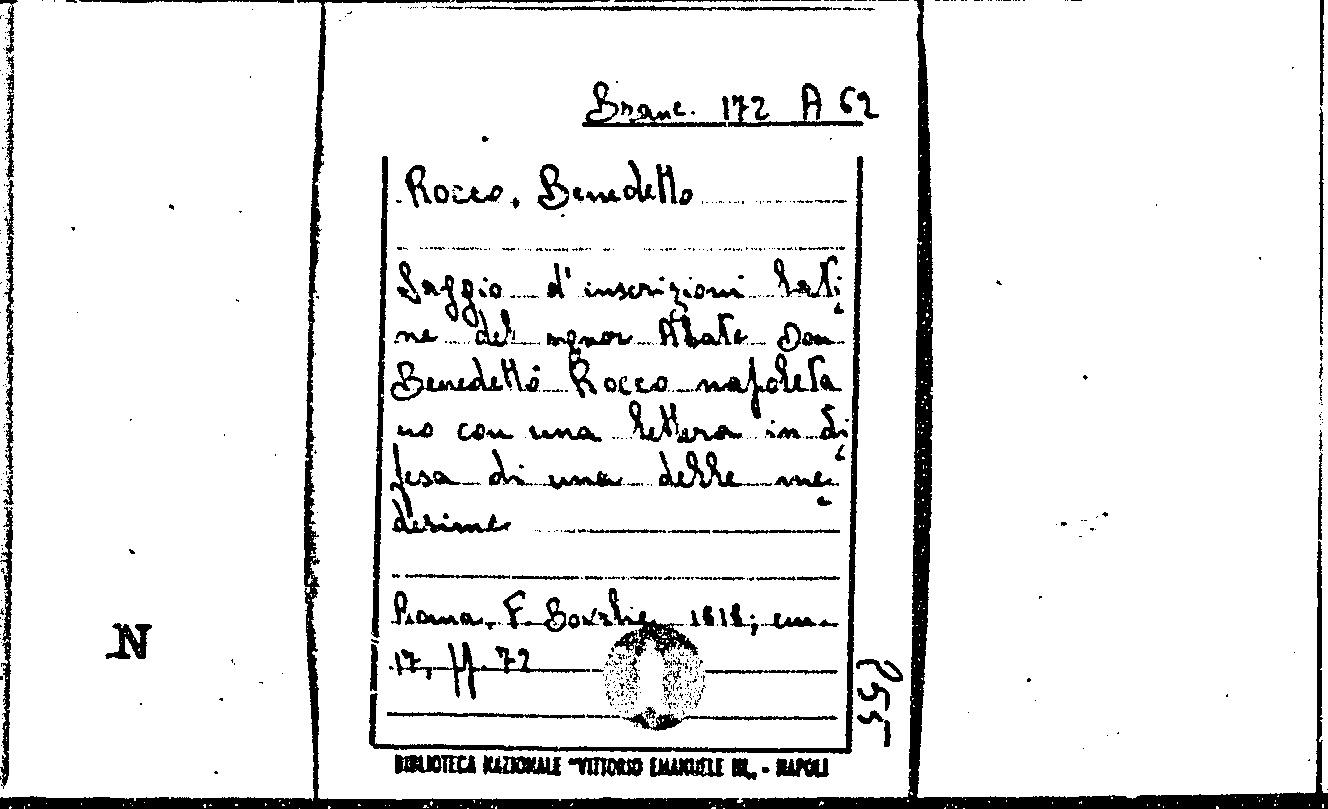 Branc. 172 A 62
Rocco, Benedetto
Saggio d'inscrizioni lati
ne del signor Abate Don
Benedetto Rocco napoleta
no con una lettera in di
fesa di una delle me
desime
Roma, F. Bourlie, 1818; cm.
17, pp. 72
BIBLIOTECA NAZIONALE "VITTORIO EMANUELE III„ - NAPOLI
N